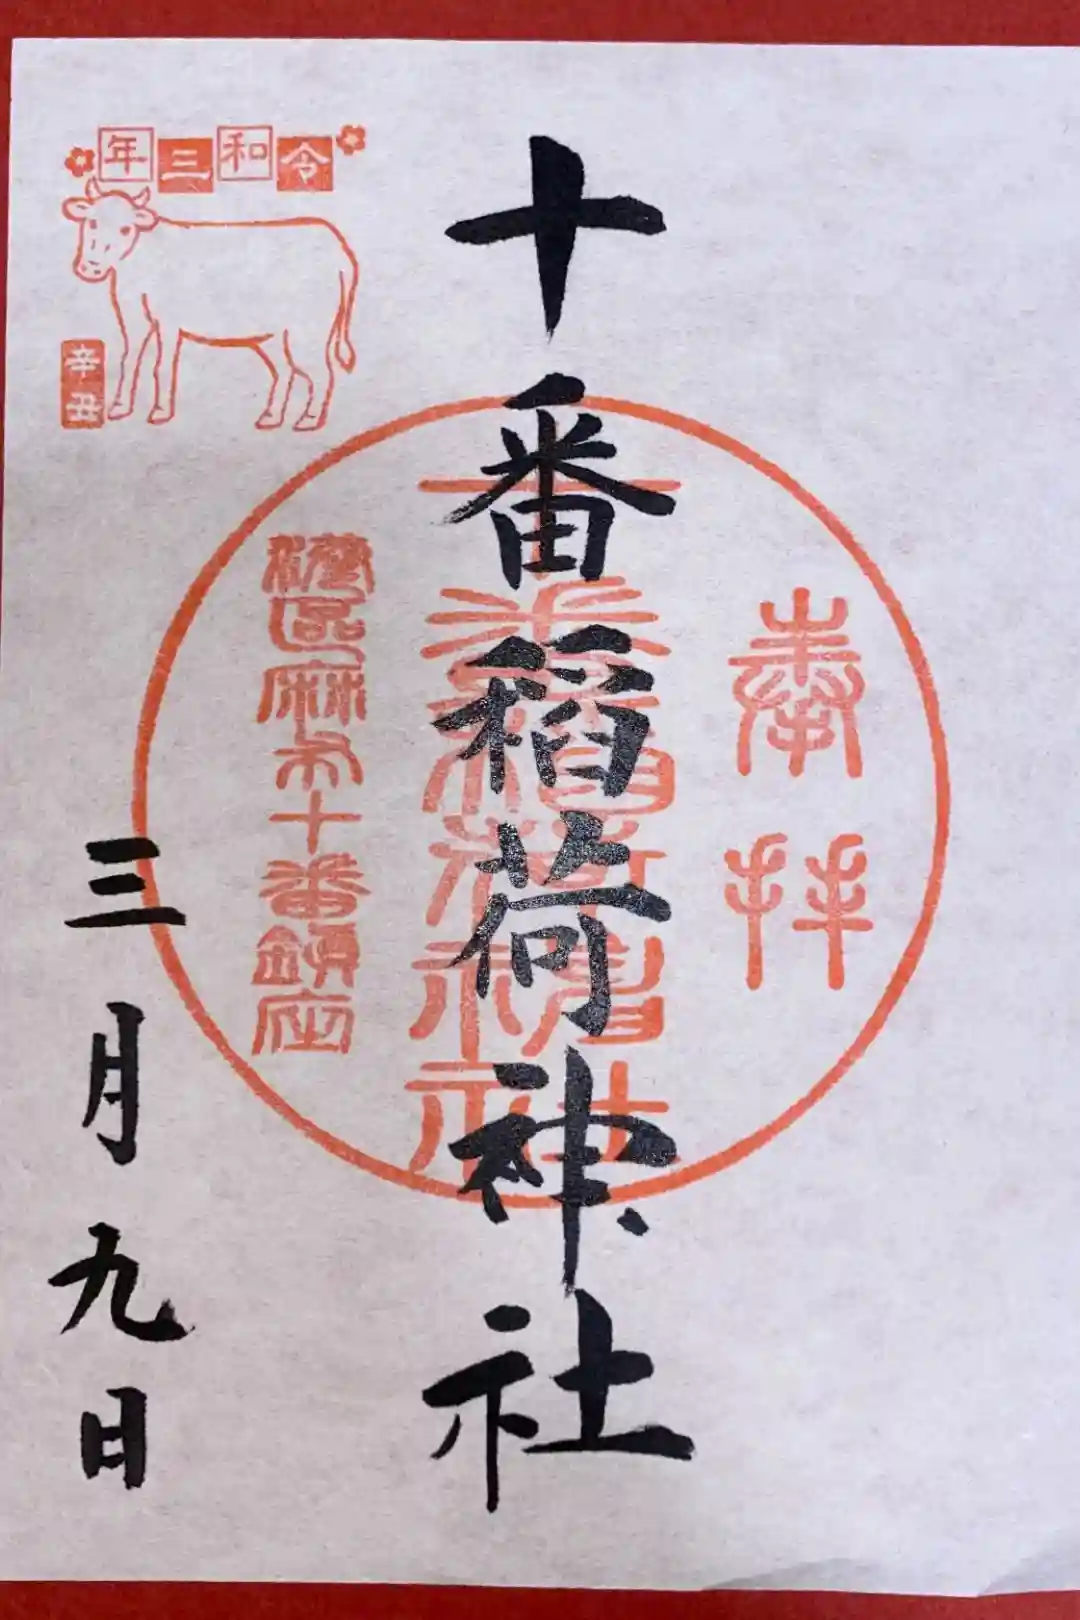 奉拝
十番稲荷神社
十番稲荷神社
港区麻布十番鎮座
令和三年
辛丑
三月九日